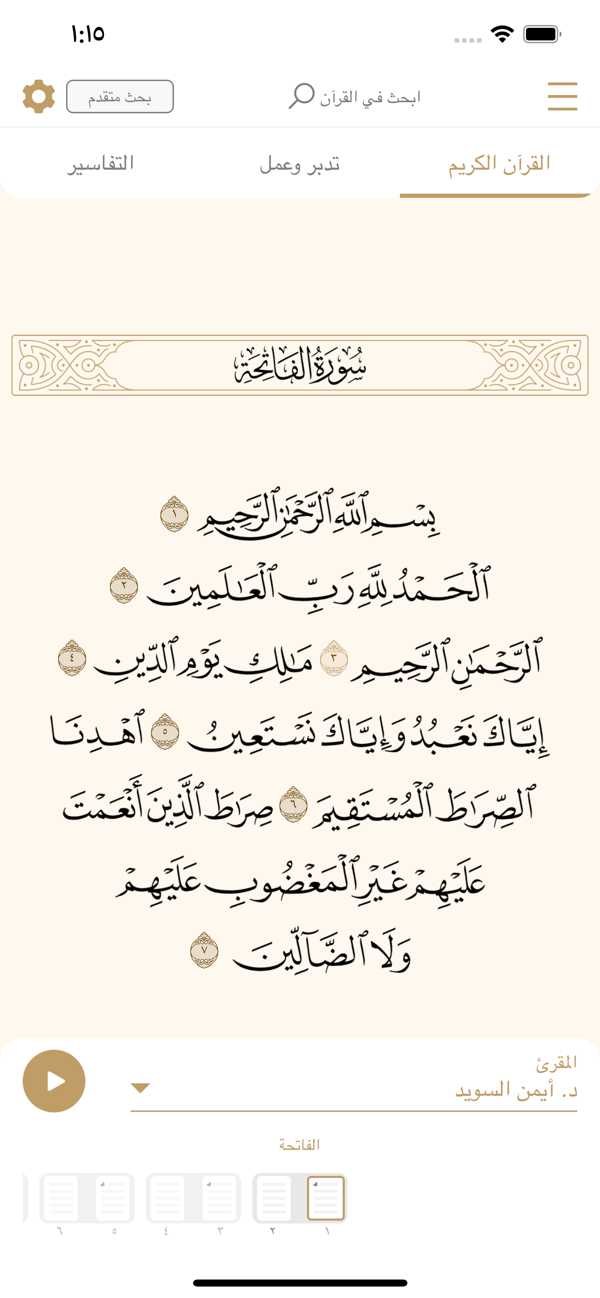 ١:١٥
ابحث في القرآن
بحث متقدم
القرآن الكريم
تدبر وعمل
التفاسير
سُورَةُ الفَاتِحَةِ
بِسْمِ ٱللَّهِ ٱلرَّحْمَٰنِ ٱلرَّحِيمِ ١
ٱلْحَمْدُ لِلَّهِ رَبِّ ٱلْعَٰلَمِينَ ٢
ٱلرَّحْمَٰنِ ٱلرَّحِيمِ ٣ مَٰلِكِ يَوْمِ ٱلدِّينِ ٤
إِيَّاكَ نَعْبُدُ وَإِيَّاكَ نَسْتَعِينُ ٥ ٱهْدِنَا
ٱلصِّرَٰطَ ٱلْمُسْتَقِيمَ ٦ صِرَٰطَ ٱلَّذِينَ أَنْعَمْتَ
عَلَيْهِمْ غَيْرِ ٱلْمَغْضُوبِ عَلَيْهِمْ
وَلَا ٱلضَّآلِّينَ ٧
المقرئ
د. أيمن السويد
الفاتحة
١ ٢ ٣ ٤ ٥ ٦